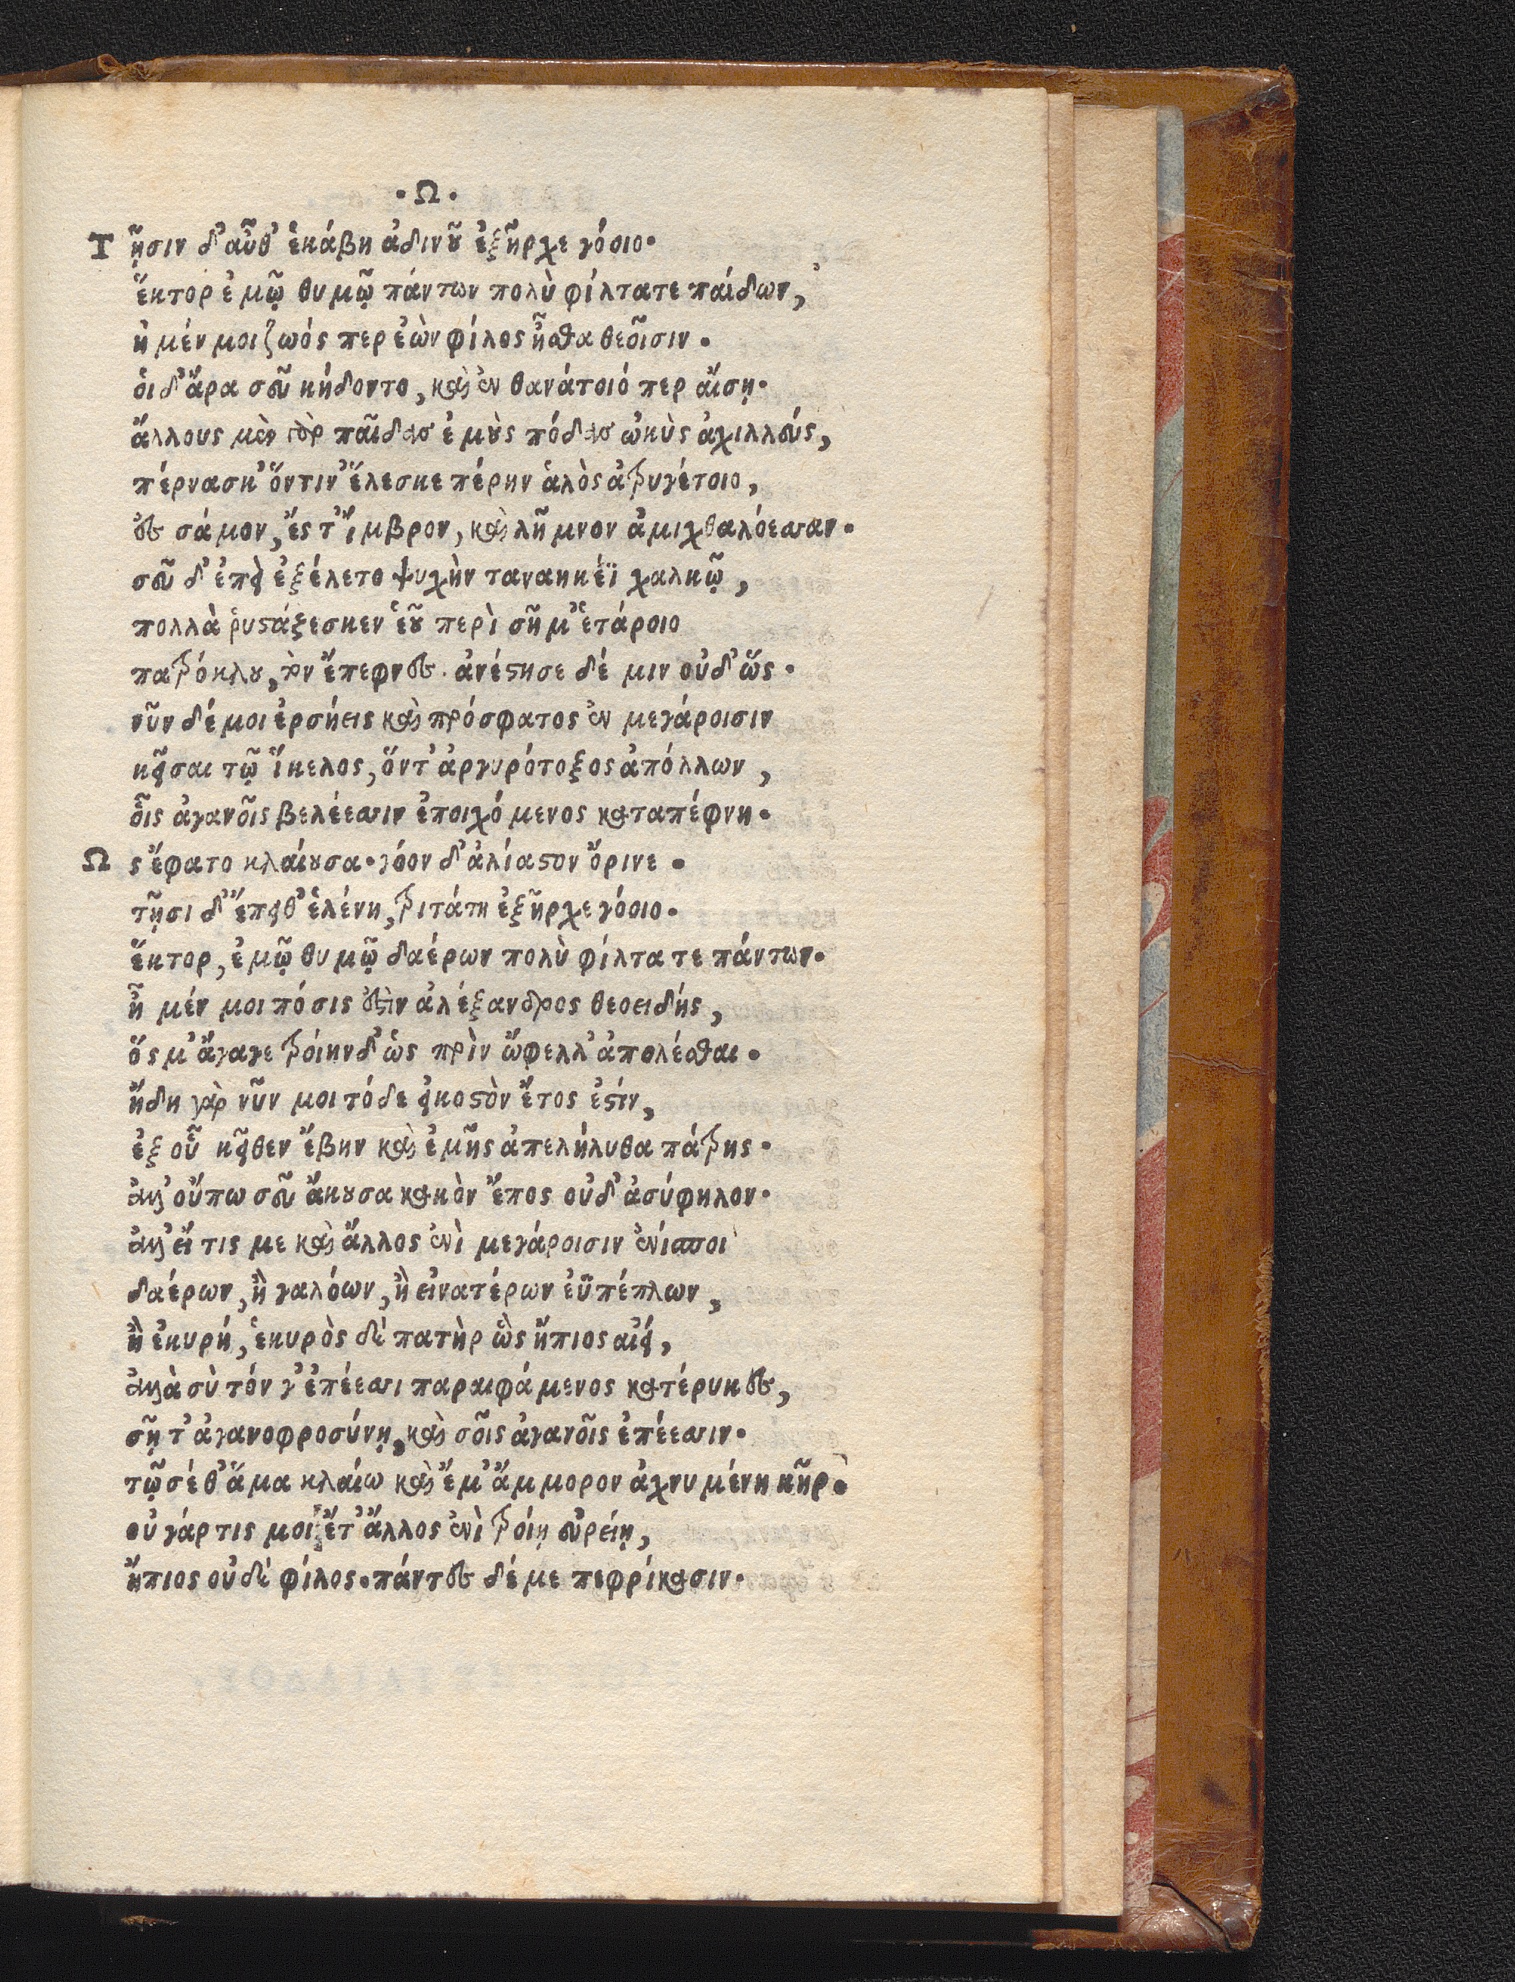 ·Ω·
Τῇσιν δ' αὖθ' ἑκάβη ἀδινοῦ ἐξῆρχε γόοιο·
ἕκτορ ἐμῷ θυμῷ πάντων πολὺ φίλτατε παίδων,
ἠ μέν μοι ζωός περ ἐὼν φίλος ἦσθα θεοῖσιν.
ὁι δ' ἄρα σεῦ κήδοντο, καὶ ἐν θανάτοιό περ αἴσῃ.
ἄλλους μὲν γὰρ παῖδας ἐμοὺς πόδας ὠκὺς ἀχιλλεύς,
πέρνασκ' ὅντιν' ἕλεσκε πέρην ἁλὸς ἀτρυγέτοιο,
ἐς σάμον, ἔς τ' ἴμβρον, καὶ λῆμνον ἀμιχθαλόεσσαν.
σεῦ δ' ἐπεὶ ἐξέλετο ψυχὴν ταναηκέϊ χαλκῷ,
πολλὰ ῥυστάζεσκεν ἑοῦ περὶ σῆμ' ἑτάροιο
πατρόκλου, τὸν ἔπεφνες. ἀνέστησε δέ μιν οὐδ' ὥς.
νῦν δέ μοι ἐρσήεις καὶ πρόσφατος ἐν μεγάροισιν
κεῖσαι τῷ ἴκελος, ὅντ' ἀργυρότοξος ἀπόλλων,
οἷς ἀγανοῖς βελέεσσιν ἐποιχόμενος καταπέφνη.
Ως ἔφατο κλαίουσα· γόον δ' ἀλίαστον ὄρινε.
τῇσι δ' ἔπειθ' ἑλένη, τριτάτη ἐξῆρχε γόοιο.
ἕκτορ, ἐμῷ θυμῷ δαέρων πολὺ φίλτατε πάντων.
ἦ μέν μοι πόσις ἐστὶν ἀλέξανδρος θεοειδής,
ὅς μ' ἄγαγε τροίηνδ' ὡς πρὶν ὤφελλ' ἀπολέσθαι.
ἤδη γὰρ νῦν μοι τόδε εἰκοστὸν ἔτος ἐστίν,
ἐξ οὗ κεῖθεν ἔβην καὶ ἐμῆς ἀπελήλυθα πάτρης.
ἀλλ' οὔπω σεῦ ἄκουσα κακὸν ἔπος οὐδ' ἀσύφηλον.
ἀλλ' εἴ τις με καὶ ἄλλος ἐνὶ μεγάροισιν ἐνίπποι
δαέρων, ἢ γαλόων, ἢ εἰνατέρων ἐϋπέπλων,
ἢ ἑκυρή, ἑκυρὸς δὲ πατὴρ ὣς ἤπιος αἰεί,
ἀλλὰ σὺ τόν γ' ἐπέεσσι παραιφάμενος κατέρυκες,
σῇ τ' ἀγανοφροσύνῃ, καὶ σοῖς ἀγανοῖς ἐπέεσσιν.
τῷ σέ θ' ἅμα κλαίω καὶ ἔμ' ἄμμορον ἀχνυμένη κῆρ.
οὐ γάρ τις μοι ἔτ' ἄλλος ἐνὶ τροίῃ εὐρείῃ,
ἤπιος οὐδὲ φίλος· πάντες δέ με πεφρίκασιν.